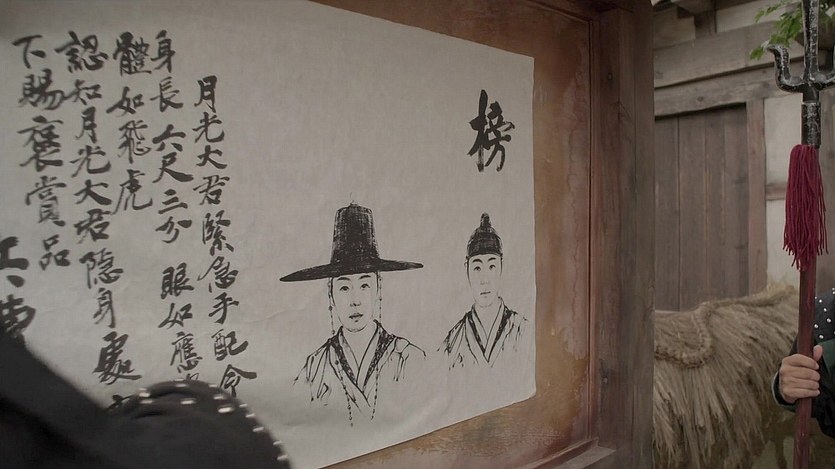 榜
月光大君緊急手配令
身長 六尺三分 眼如應
體如飛虎
認知月光大君隐身處
下賜褒賞品